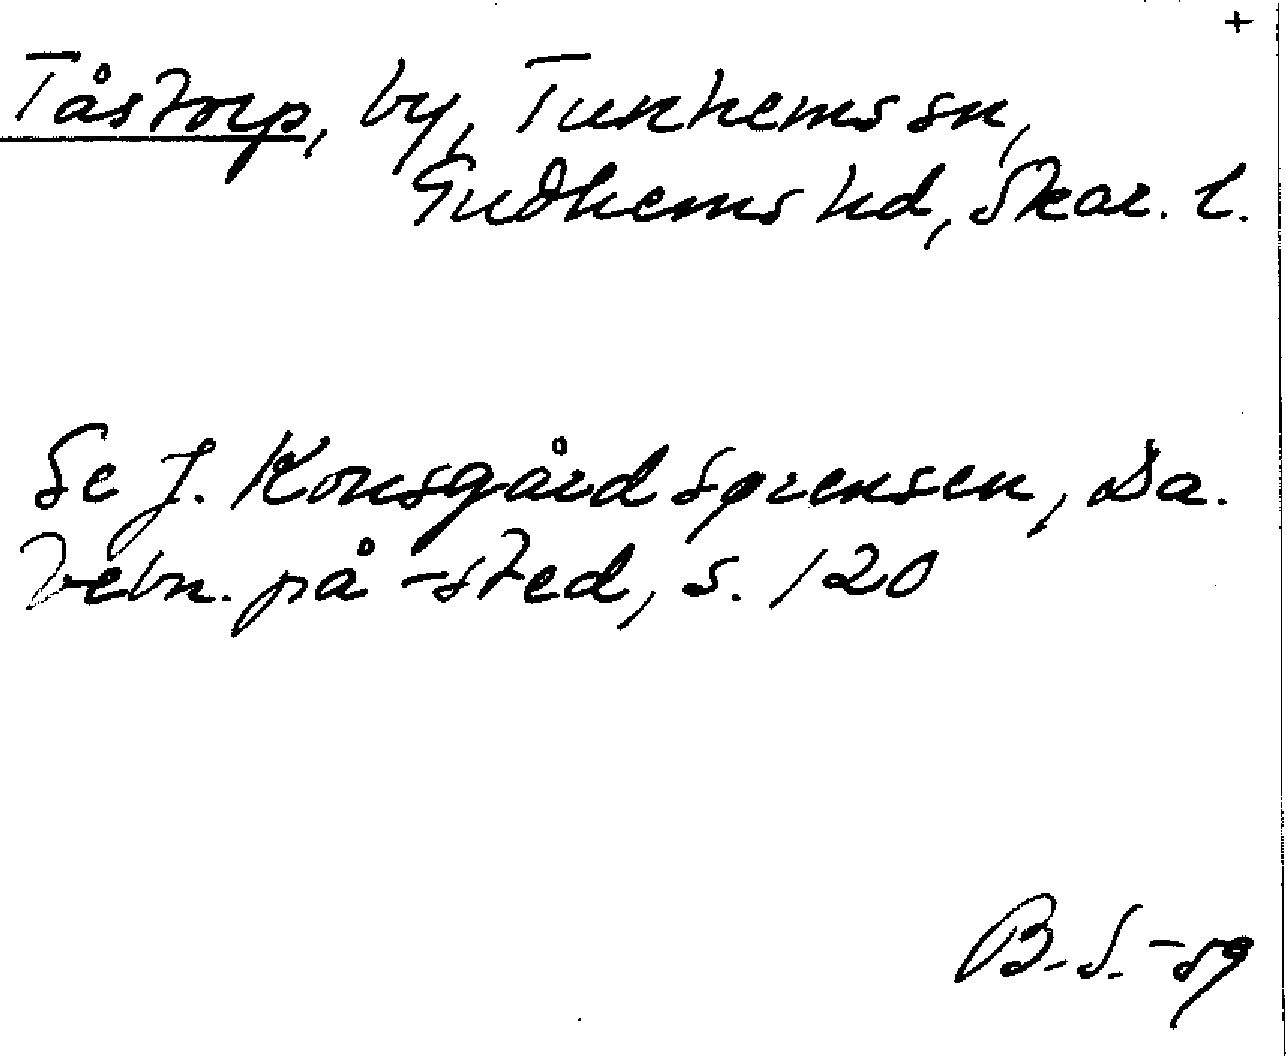 +
Tåstorp, by, Tunhems sn,
Gudhems hd, Skar. l.
Se J. Konsgård Sørensen, Da.
bebn. på -sted, s. 120
B. S. -59